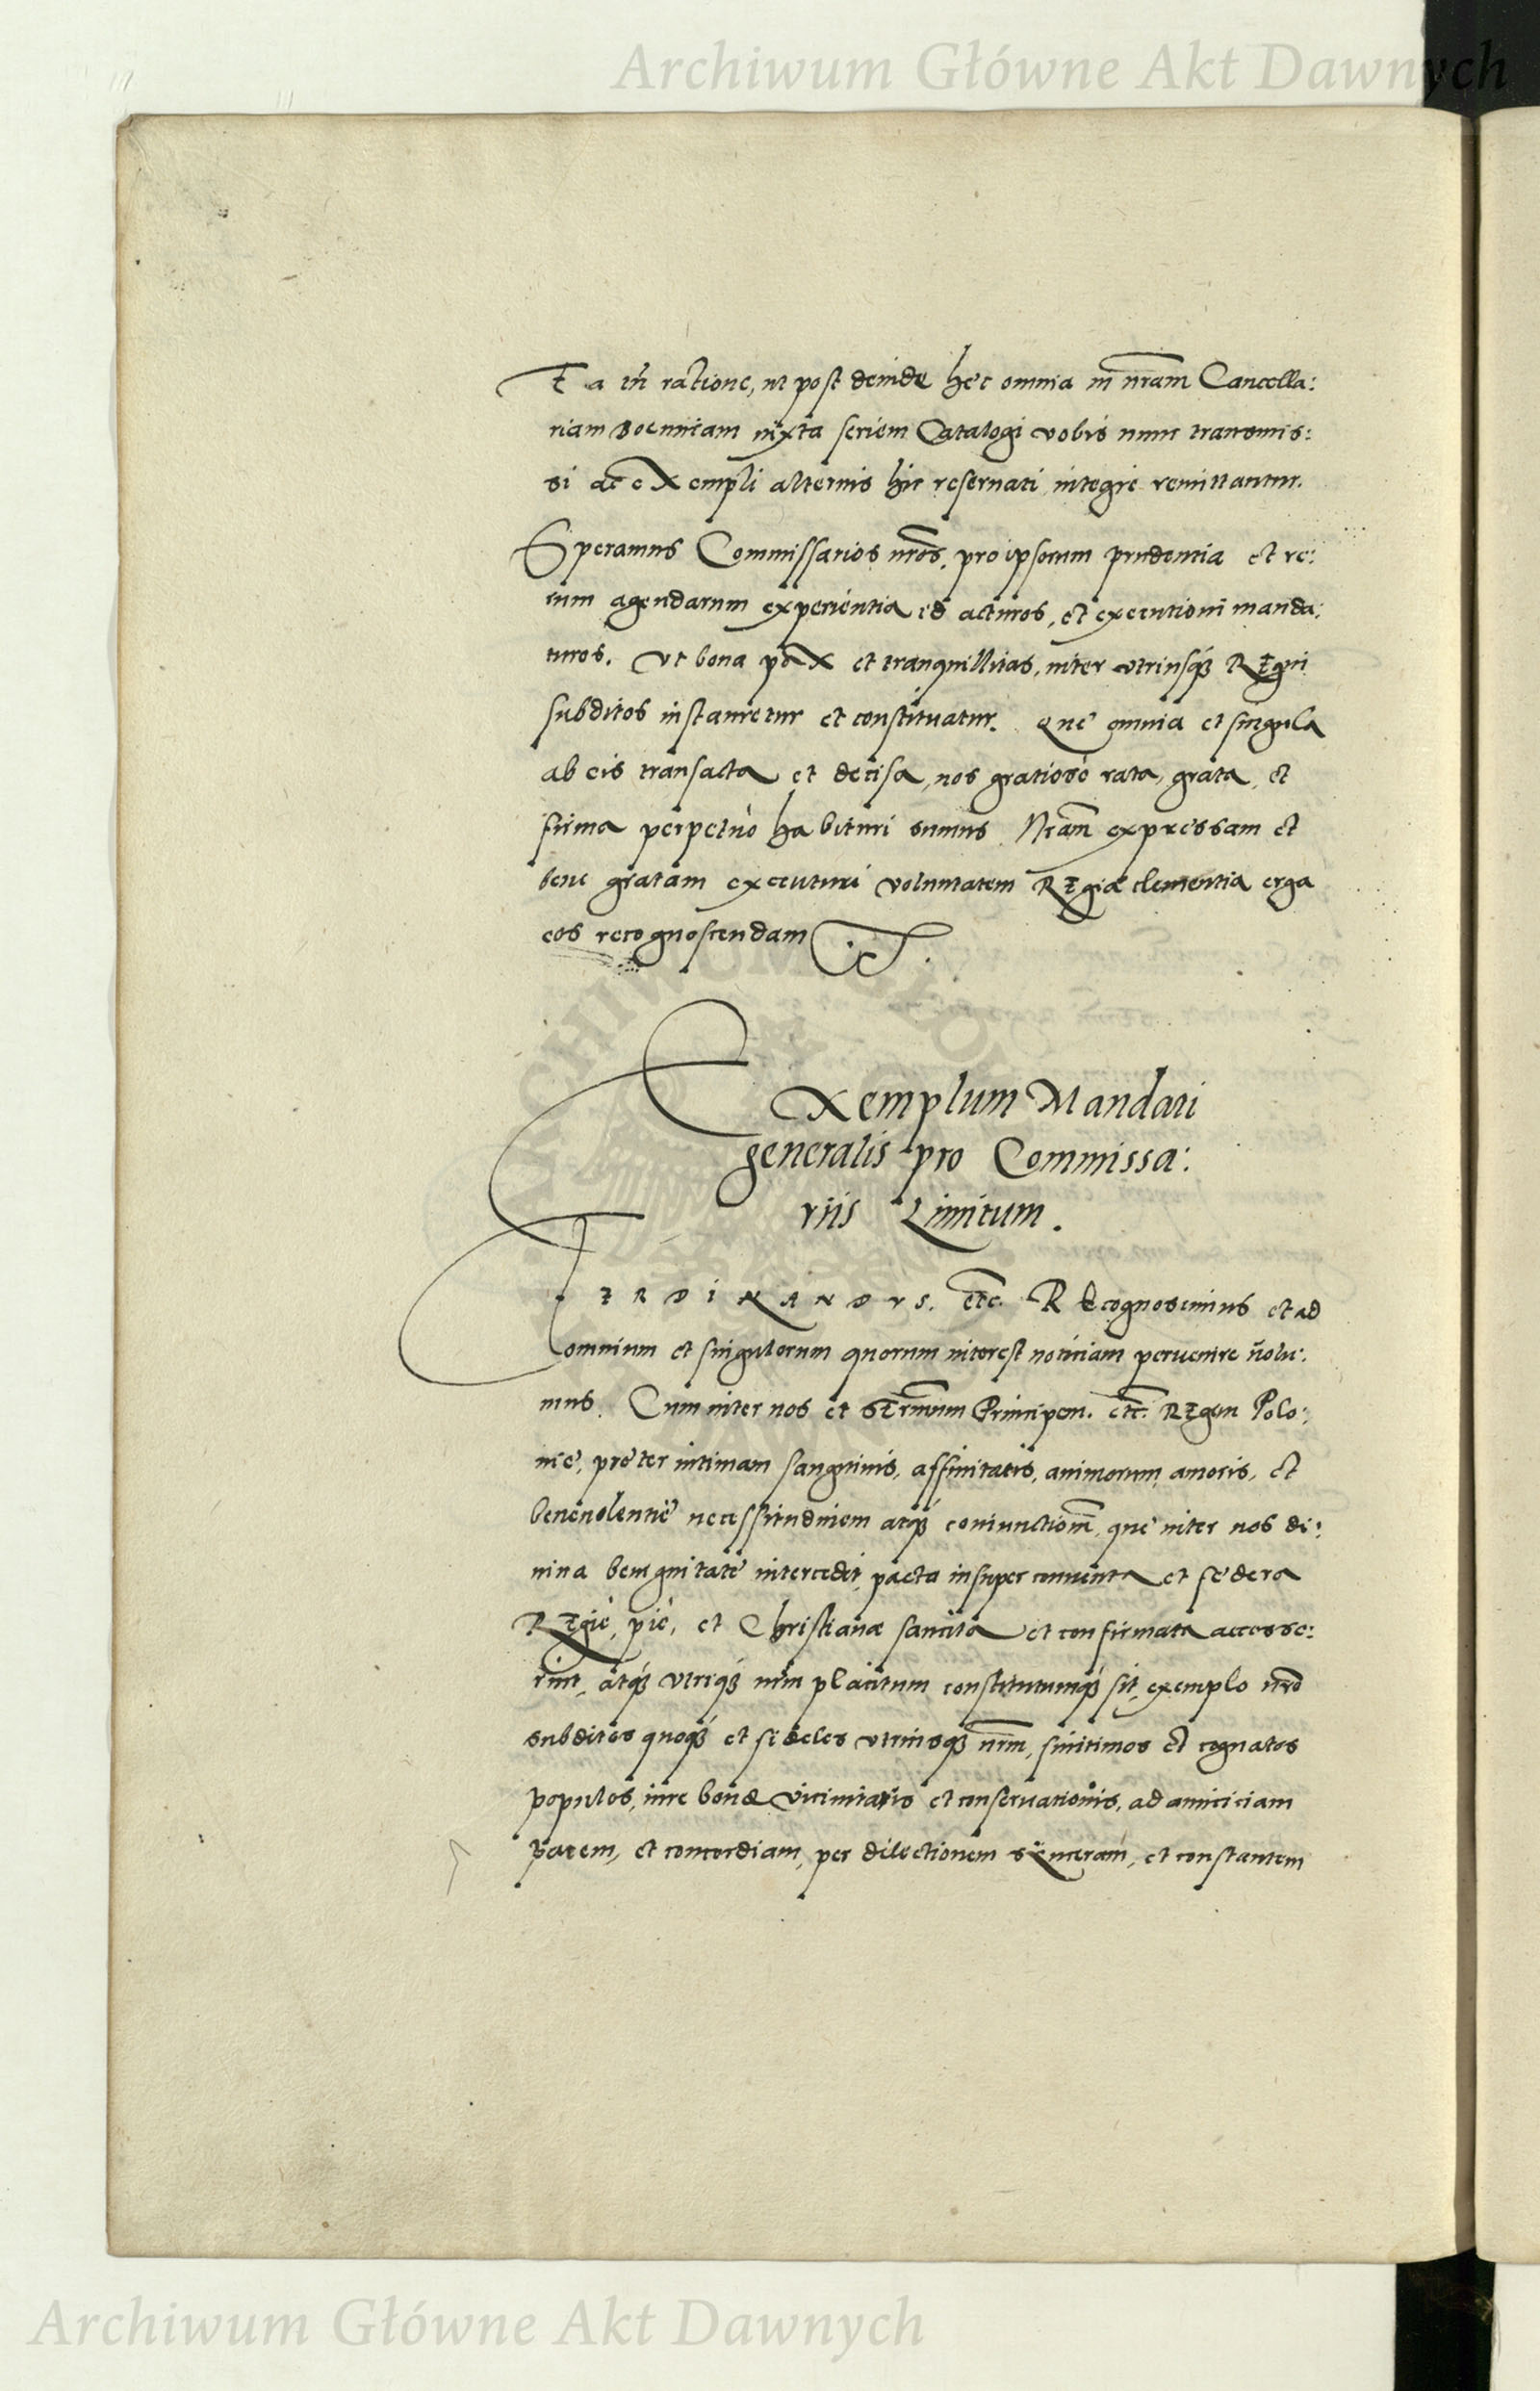 Archiwum Główne Akt Dawnych
Ea tñ ratione, ut post deinde hec omnia in nram Cancella:
riam Boemicam iuxta seriem Catalogi vobis nunc transmis:
si ac eXempli alterius hic reseruati integre remittantur.
Speramus Commissarios nros, pro ipsorum prudentia et re:
rum agendarum experientia ed acturos, et executioni manda:
turos. Ut bona paX et tranquillitas, inter utriusq3 REgni
subditos instauretur et constituatur. Que omnia et singula
ab eis transacta et decisa, nos gratiose rata, grata, et
firma perpetuò habituri sumus. Nram expressam et
bene gratam executuri voluntatem REgiæ clementia erga
eos recognoscendam
EXemplum Mandati
generalis pro Commissa:
riis Limitum.
FERDINANDVS. etc. REcognoscimus et ad
omnium et singulorum quorum interest noticiam peruenire volu:
mus. Cum inter nos et SErmum Principem. etc. REgem Polo:
nie, preter intimam sanguinis, affinitatis, animorum, amoris, et
beneuolentie necessitudinem atq3 coniunctionem, que inter nos di:
uina benignitate intercedit, pacta insuper conuenta et federa
REgie, pie, et Christianæ sancita et confirmata accesse:
rint, atq3 utriq3 nrm placitum constitutumq3 sit, exemplo nro
subditos quoq3 et fideles utriusq3 nrm, finitimos et cognatos
populos, iure bonæ vicinitatis et conseruationis, ad amiciciam
pacem, et concordiam, per dilectionem sinceram, et constantem
Archiwum Główne Akt Dawnych